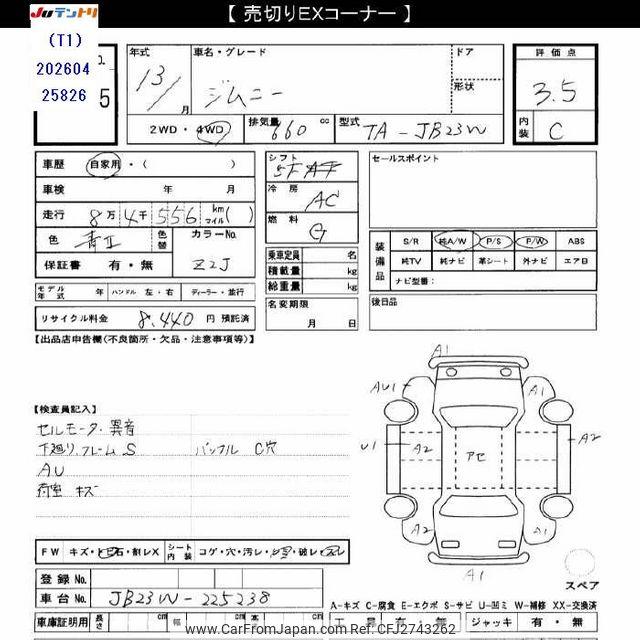 【 売切りEXコーナー 】
JUテントリ
(T1)
202604
25826
o.
5
年式
13/
月
車名・グレード
ジムニー
ドア
形状
評価点
3.5
2WD・4WD
排気量
660
cc
型式
TA-JB23W
内装
C
車歴
自家用・( )
車検
年 月
走行
8万4千556
km
マイル( )
色
青II
色替
カラーNo.
Z2J
保証書
有・無
シフト
5F AT
冷房
AC
燃料
G
乗車定員
名
積載量
kg
総重量
kg
セールスポイント
装備品
S/R
純A/W
P/S
P/W
ABS
純TV
純ナビ
革シート
外ナビ
エアB
ナビ型番:
モデル年式
年
ハンドル 左・右
ディーラー・並行
名変期限
月 日
後日品
リサイクル料金
8,440
円 預託済
【出品店申告欄(不良箇所・欠品・注意事項等)】
【検査員記入】
セルモータ・異音
下廻り.フレーム S
マフラル C穴
AU
荷室 キズ
A1
AU1
A1
U1
A2
アセ
A2
A2
A1
A1
FW
キズ・トビ石・割レX
シート内装
コゲ・穴・汚レ・
・破レ・スレ
スペア
登録 No.
車台 No.
JB23W-225238
A-キズ C-腐食 E-エクボ S-サビ U-凹ミ W-補修 XX-交換済
車庫証明用
長さ
cm
幅
cm
高
工具 有・無
ジャッキ
有・無
www.CarFromJapan.com Ref:CFJ2743262